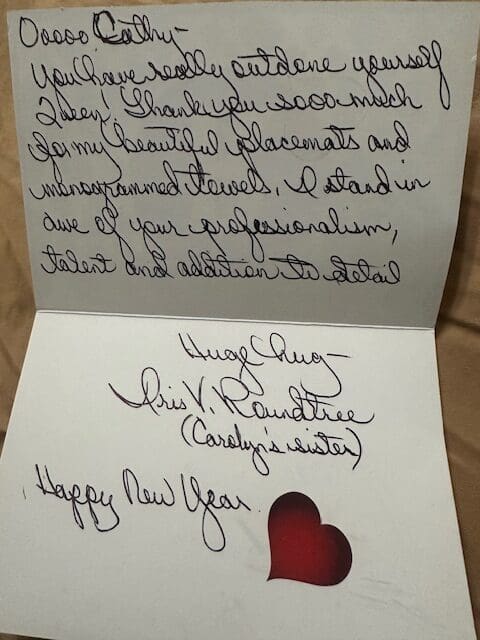 Ooooo Cathy-
You have really outdone yourself
Queen! Thank you sooo much
for my beautiful placemats and
monogrammed towels. I stand in
awe of your professionalism,
talent and addition to detail
Huge hug-
Iris V. Roundtree
(Carolyn's sister)
Happy New Year.